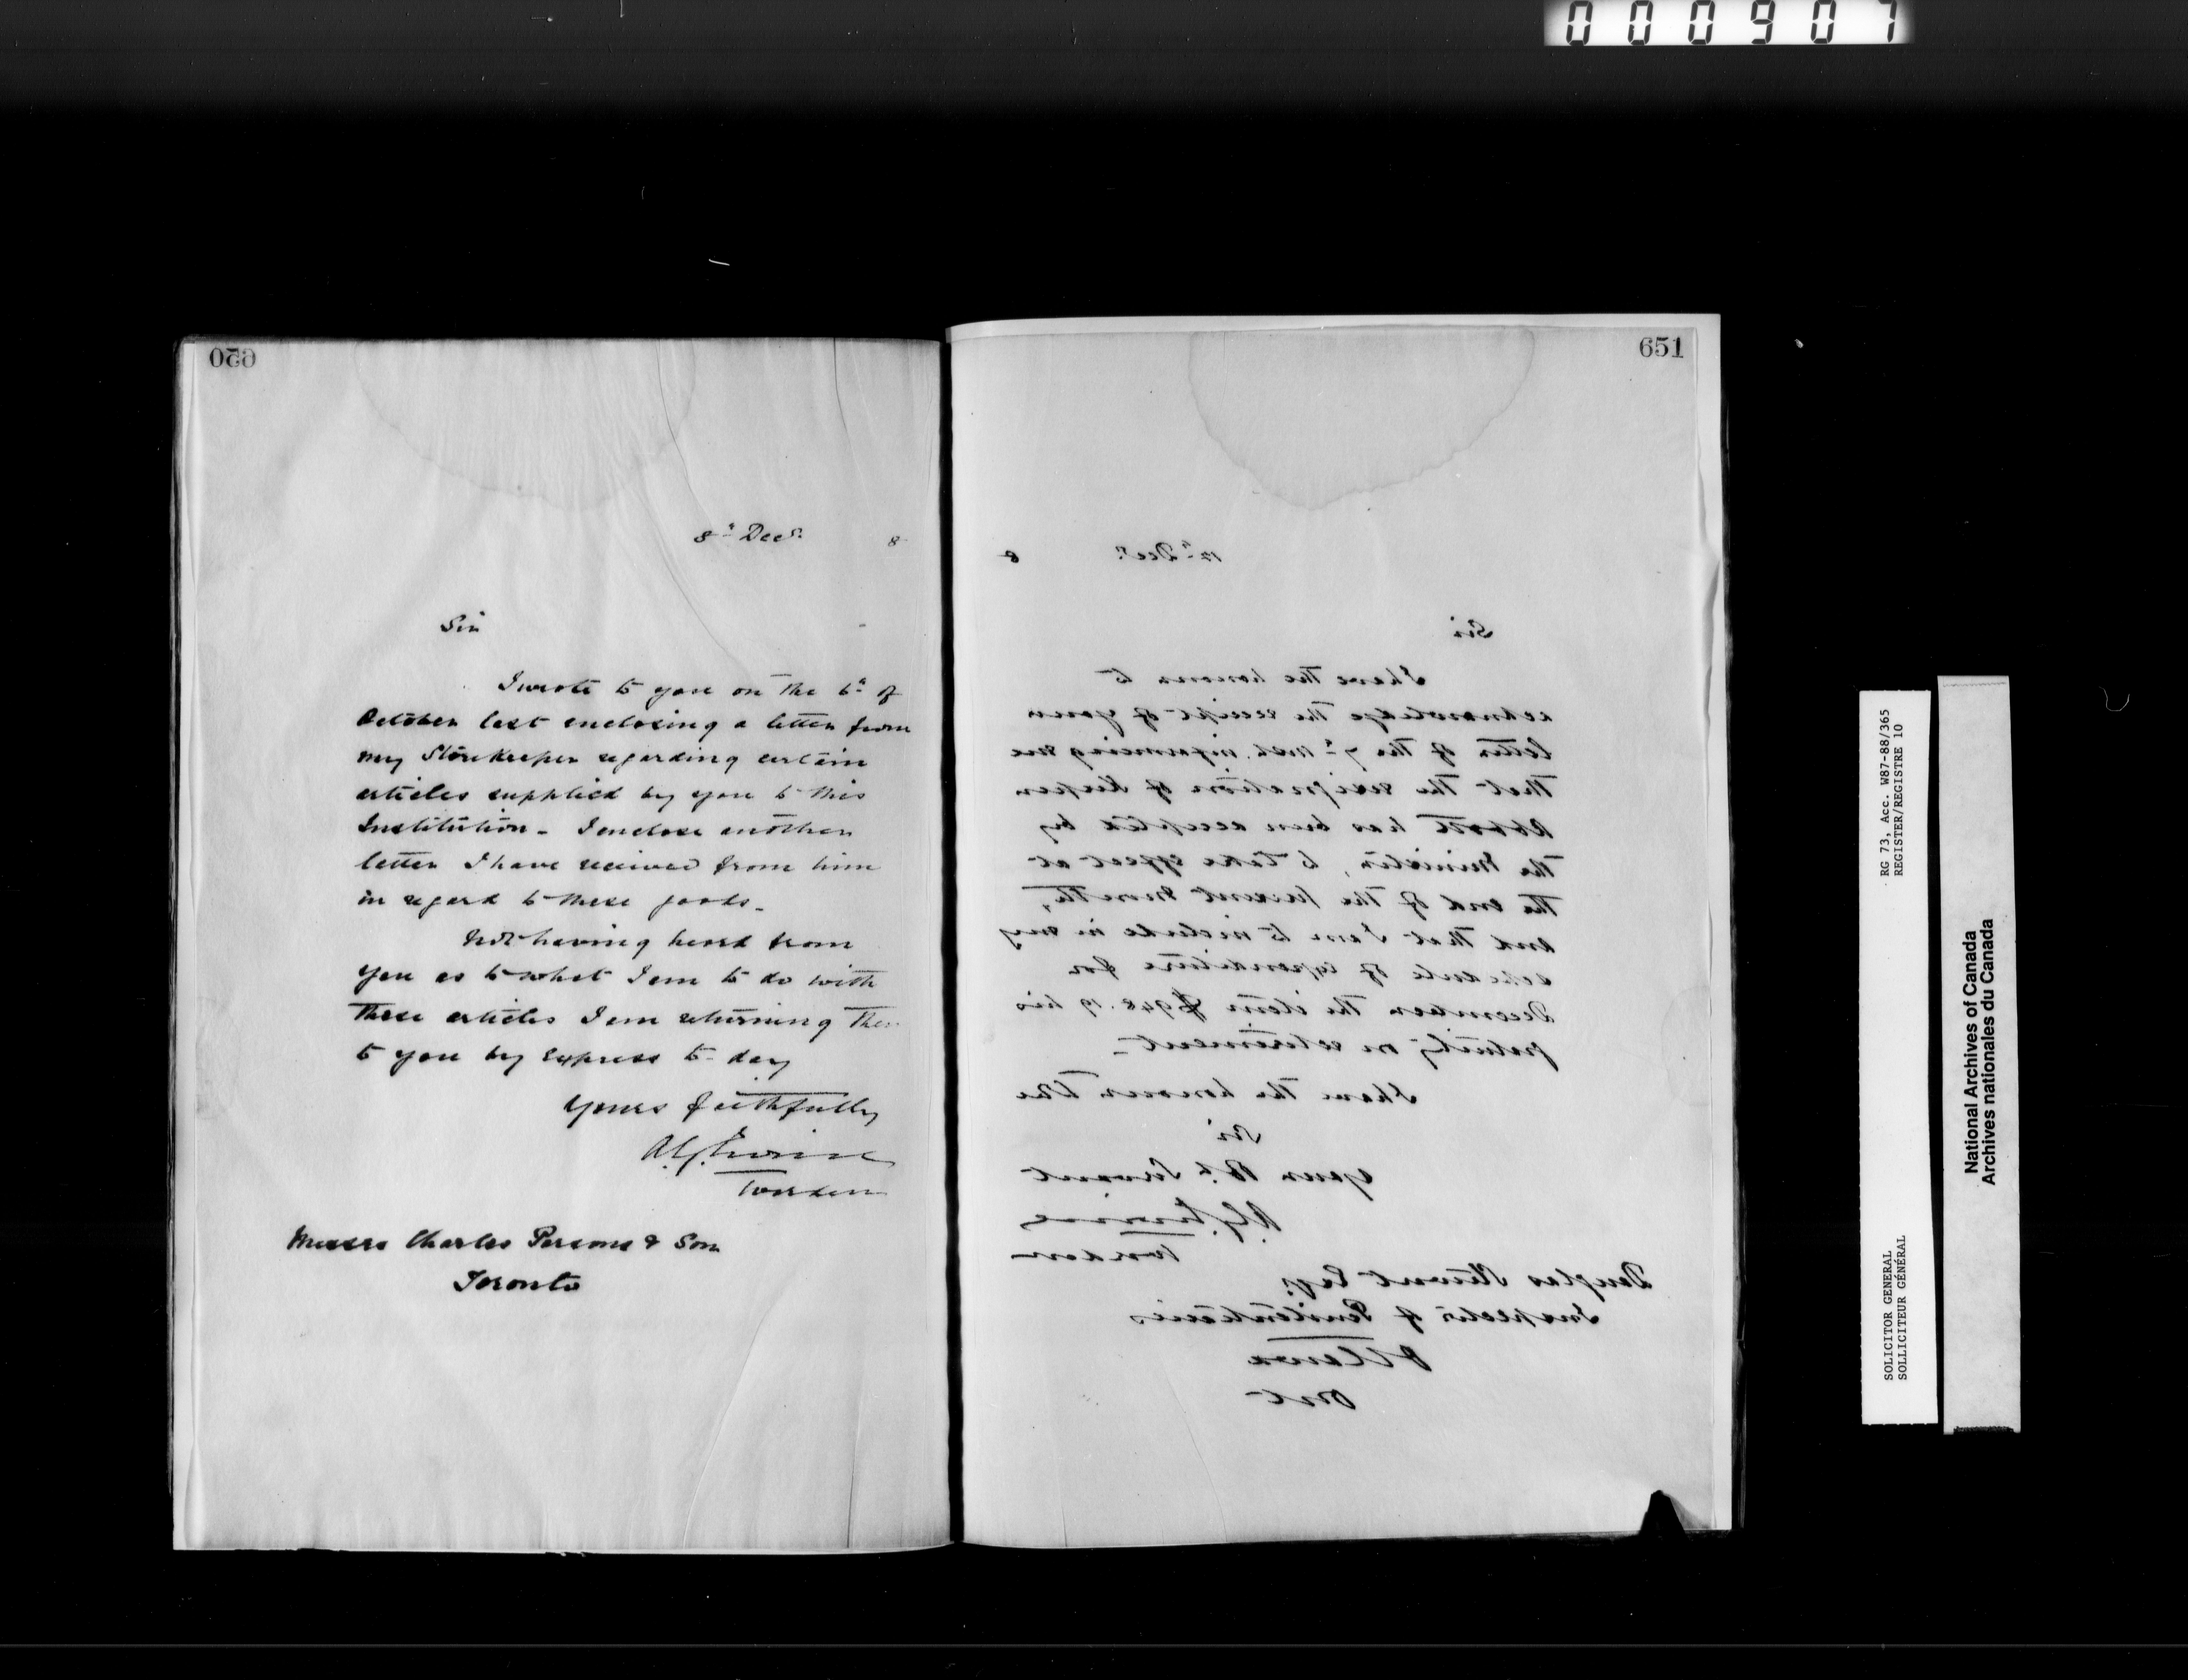 000907
650
8th Decr. 8
Sir
I wrote to you on the 6th of
October last enclosing a letter from
my Storekeeper regarding certain
articles supplied by you to this
Institution - I enclose another
letter I have received from him
in regard to these goods -
Not having heard from
you as to what I am to do with
these articles I am returning them
to you by express to-day
Yours faithfully
Warden
Messrs Charles Parsons & Son
Toronto
651
12th Decr. 8
Sir
I have the honour to
acknowledge the receipt of your
letter of the 7th inst. informing me
that the resignation of Keeper
Abbott has been accepted by
the Minister, to take effect at
the end of the present month,
and that I am to include in my
schedule of expenditure for
December the item $948.19 his
gratuity on retirement -
I have the honour to be
Sir
Your Obt. Servant
Warden
Douglas Stewart Esq.
Inspector of Penitentiaries
Ottawa
Ont
RG 73, Acc. W87-88/365
REGISTER/REGISTRE 10
SOLICITOR GENERAL
SOLLICITEUR GÉNÉRAL
National Archives of Canada
Archives nationales du Canada